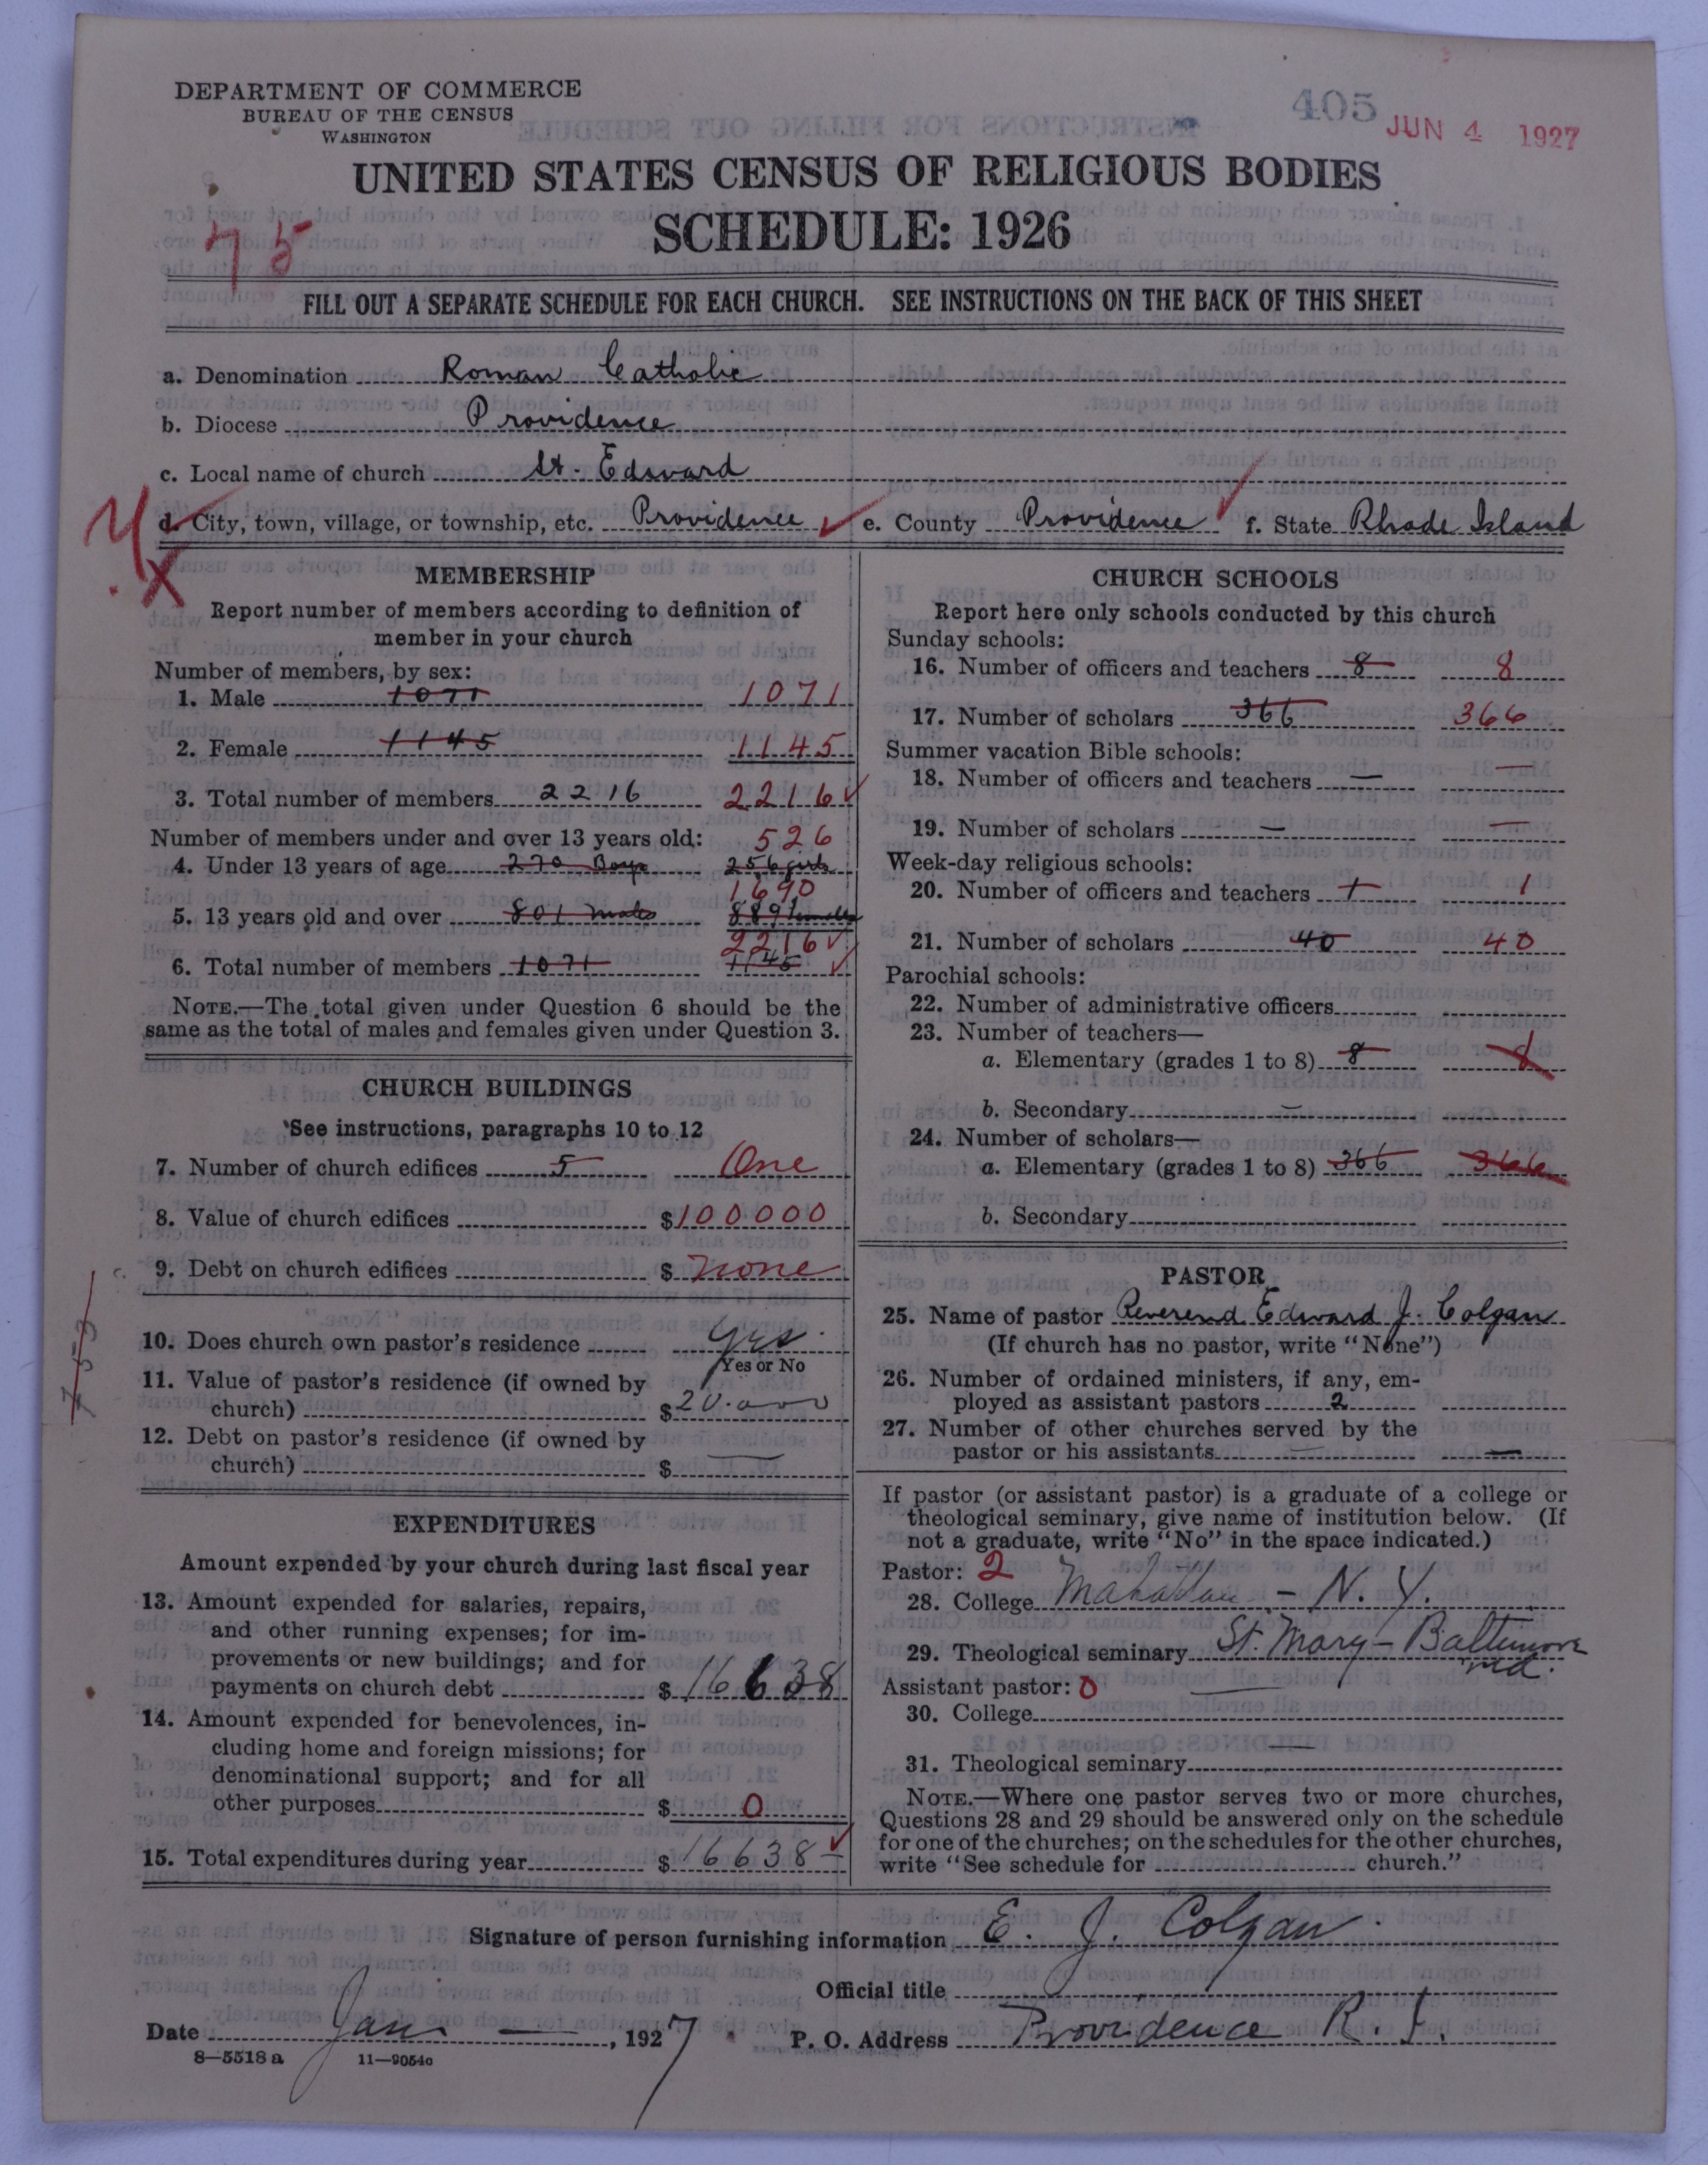 DEPARTMENT OF COMMERCE
BUREAU OF THE CENSUS
WASHINGTON
405
JUN 4 1927
UNITED STATES CENSUS OF RELIGIOUS BODIES
SCHEDULE: 1926
75
FILL OUT A SEPARATE SCHEDULE FOR EACH CHURCH. SEE INSTRUCTIONS ON THE BACK OF THIS SHEET
a. Denomination Roman Catholic
b. Diocese Providence
c. Local name of church St. Edward
d. City, town, village, or township, etc. Providence e. County Providence f. State Rhode Island
MEMBERSHIP
Report number of members according to definition of
member in your church
Number of members, by sex:
1. Male 1071 1071
2. Female 1145 1145
3. Total number of members 2216 2216
Number of members under and over 13 years old: 526
4. Under 13 years of age 270 Boys 256 girls
1690
5. 13 years old and over 801 males 889 females
2216
6. Total number of members 1071 1145
NOTE.—The total given under Question 6 should be the
same as the total of males and females given under Question 3.
CHURCH BUILDINGS
See instructions, paragraphs 10 to 12
7. Number of church edifices 5 One
8. Value of church edifices $100000
9. Debt on church edifices $ None
10. Does church own pastor's residence Yes
Yes or No
11. Value of pastor's residence (if owned by
church) $20.000
12. Debt on pastor's residence (if owned by
church) $ —
753
EXPENDITURES
Amount expended by your church during last fiscal year
13. Amount expended for salaries, repairs,
and other running expenses; for im-
provements or new buildings; and for
payments on church debt $ 16638
14. Amount expended for benevolences, in-
cluding home and foreign missions; for
denominational support; and for all
other purposes $ 0
15. Total expenditures during year $ 16638 —
CHURCH SCHOOLS
Report here only schools conducted by this church
Sunday schools:
16. Number of officers and teachers 8 8
17. Number of scholars 366 366
Summer vacation Bible schools:
18. Number of officers and teachers — —
19. Number of scholars — —
Week-day religious schools:
20. Number of officers and teachers 1 1
21. Number of scholars 40 40
Parochial schools:
22. Number of administrative officers
23. Number of teachers—
a. Elementary (grades 1 to 8) 8 8
b. Secondary —
24. Number of scholars—
a. Elementary (grades 1 to 8) 366 366
b. Secondary
PASTOR
25. Name of pastor Reverend Edward J. Colgan
(If church has no pastor, write "None")
26. Number of ordained ministers, if any, em-
ployed as assistant pastors 2
27. Number of other churches served by the
pastor or his assistants — —
If pastor (or assistant pastor) is a graduate of a college or
theological seminary, give name of institution below. (If
not a graduate, write "No" in the space indicated.)
Pastor: 2
28. College Manhattan - N. Y.
29. Theological seminary St. Mary - Baltimore
Md.
Assistant pastor: 0 —
30. College
31. Theological seminary —
NOTE.—Where one pastor serves two or more churches,
Questions 28 and 29 should be answered only on the schedule
for one of the churches; on the schedules for the other churches,
write "See schedule for church."
Signature of person furnishing information E. J. Colgan
Official title
Date Jan. —, 1927 P. O. Address Providence R. I.
8—5518a 11—9054c